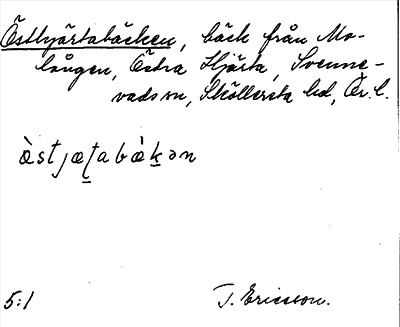 Östhjärtabäcken, bäck från Mo-
lången, Östra Hjärta, Svenne-
vads sn, Sköllersta hd, Ör. l.
òstjæʈabæ̀kən
5:1 T. Ericsson.